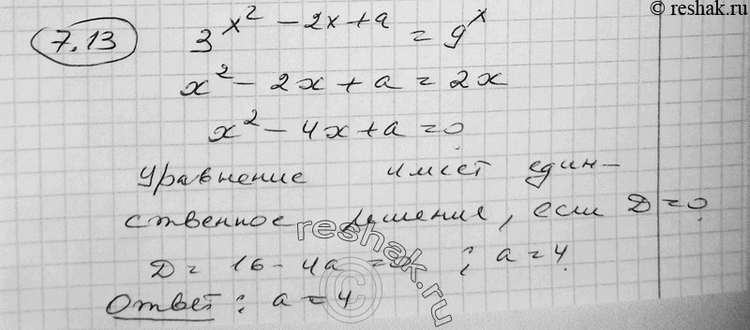 © reshak.ru
7.13 3^(x² - 2x + a) = 9^x
x² - 2x + a = 2x
x² - 4x + a = 0
Уравнение имеет един-
ственное решение, если D = 0
D = 16 - 4a = 0; a = 4.
Ответ: a = 4
reshak.ru
©